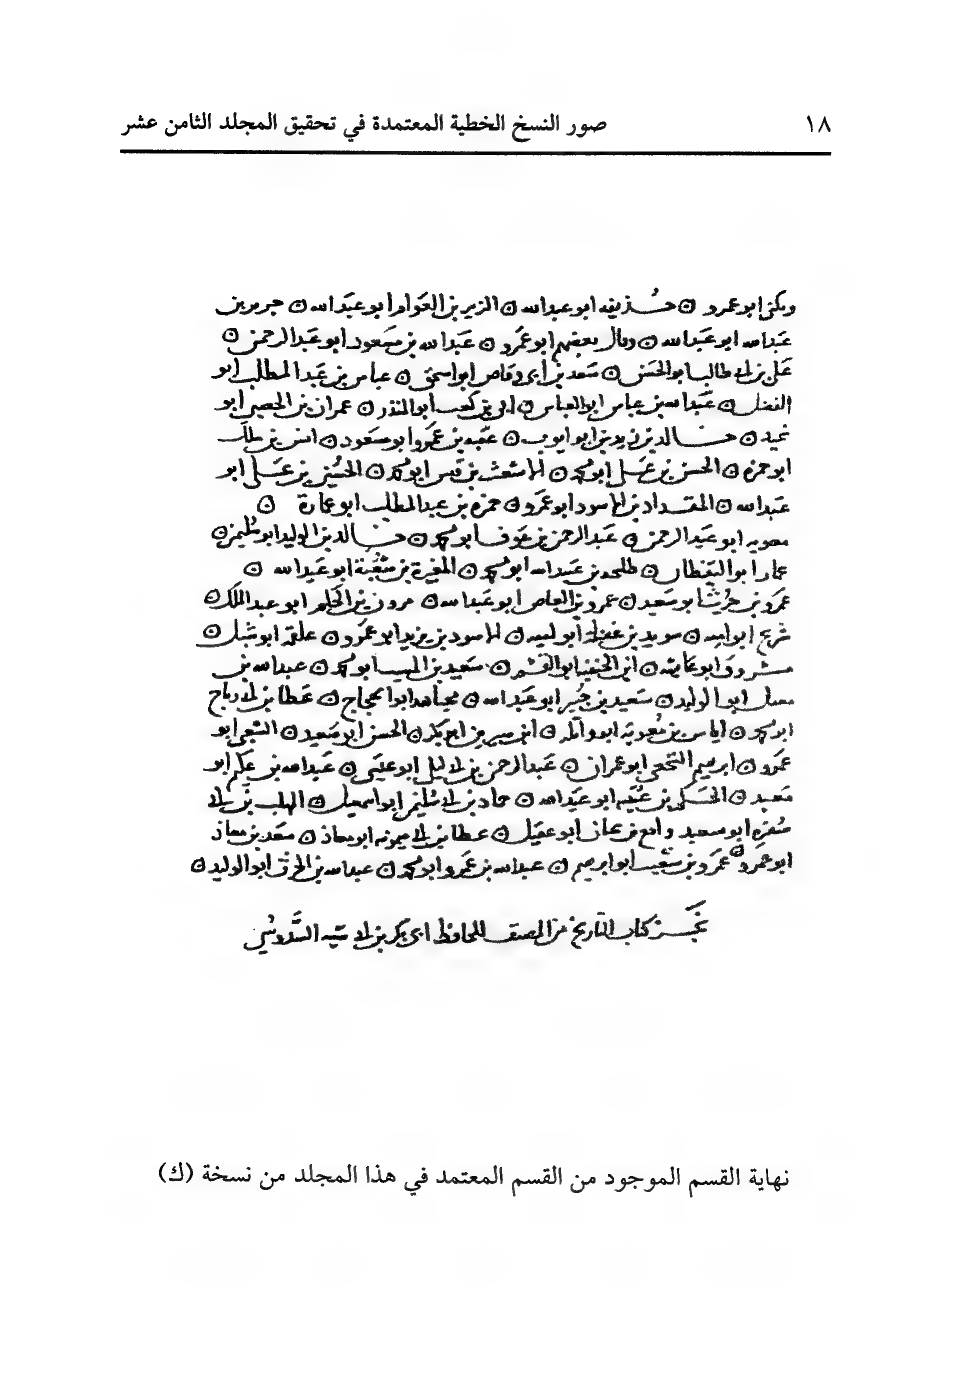 ١٨ صور النسخ الخطية المعتمدة في تحقيق المجلد الثامن عشر
ويكنى ابو عمرو ○ حذيفه ابو عبدالله ○ الزبير بن العوام ابو عبدالله ○ جرير بن
عبدالله ابو عبدالله ○ وقال بعضهم ابو عمرو ○ عبدالله بن مسعود ابو عبدالرحمن ○
علي بن ابي طالب ابو الحسن ○ سعد بن ابي وقاص ابو اسحق ○ عباس بن عبدالمطلب ابو
الفضل ○ عبدالله بن عباس ابو العباس ○ ابي بن كعب ابو المنذر ○ عمران بن الحصين ابو
نجيد ○ خالد بن زيد بن ابو ايوب ○ عقبه بن عمرو ابو مسعود ○ انس بن ملك
ابو حمزه ○ الحسن بن علي ابو محمد ○ الاشعث بن قيس ابو محمد ○ الحسين بن علي ابو
عبدالله ○ المقداد بن الاسود ابو عمرو ○ حمزه بن عبدالمطلب ابو عمارة ○
معويه ابو عبدالرحمن ○ عبدالرحمن بن عوف ابو محمد ○ خالد بن الوليد ابو سليمن ○
عمار ابو اليقظان ○ طلحه بن عبيدالله ابو محمد ○ المغيرة بن شعبة ابو عبدالله ○
عمرو بن حريث ابو سعيد ○ عمرو بن العاص ابو عبدالله ○ مرون بن الحكم ابو عبدالملك ○
شريح ابو اميه ○ سويد بن غفله ابو اميه ○ الاسود بن يزيد ابو عمرو ○ علقمه ابو شبل ○
مسروق ابو عائشه ○ ابن الحنفيه ابو القسم ○ سعيد بن المسيب ابو محمد ○ عبدالله بن
معقل ابو الوليد ○ سعيد بن جبير ابو عبدالله ○ مجاهد ابو الحجاج ○ عطا بن ابي رباح
ابو محمد ○ اياس بن معويه ابو واثله ○ ابن سيرين ابو بكر ○ الحسن ابو سعيد ○ الشعبي ابو
عمرو ○ ابرهيم النخعي ابو عمران ○ عبدالرحمن بن ابي ليلى ابو عيسى ○ عبدالله بن عكيم ابو
معبد ○ الحكم بن عتيبه ابو عبدالله ○ حماد بن ابي سليمن ابو اسمعيل ○ المهلب بن ابي
صفره ابو سعيد ابو عقيل ○ عطا بن ابي ميمونه ابو معاذ ○ سعد بن معاذ
ابو عمرو ○ عمرو بن شعيب ابو ابرهيم ○ عبدالله بن عمرو ابو محمد ○ عبدالله بن الحرث ابو الوليد ○
نجز كتاب التاريخ من المصنف للحافظ ابي بكر بن ابي شيبه
نهاية القسم الموجود من القسم المعتمد في هذا المجلد من نسخة (ك)